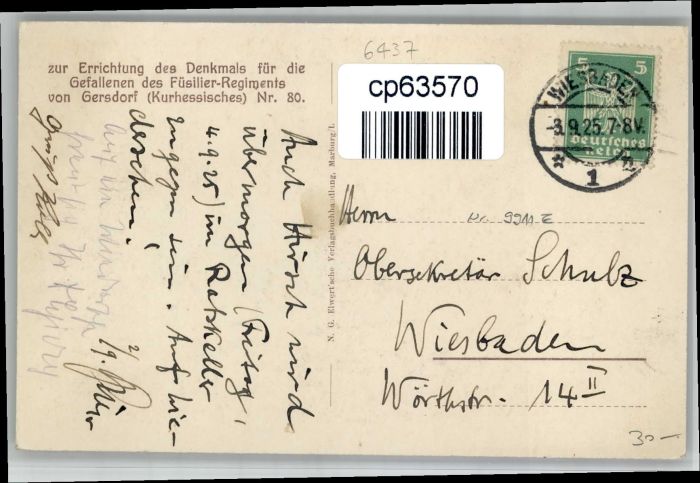 zur Errichtung des Denkmals für die
Gefallenen des Füsilier-Regiments
von Gersdorf (Kurhessisches) Nr. 80.
6437
cp63570
5 5
Deutsches
Reich
WIESBADEN
-3.9.25.7-8V.
* 1 n
N. G. Elwert'sche Verlagsbuchhandlung, Marburg/L.
Auch Hirsch wird
übermorgen (Freitag,
4.9.25) im Ratskeller
zugegen sein. Auf Wie-
dersehen!
2/9.
Herrn
Nr. 9911 E
Obersekretär Schulz
Wiesbaden
Wörthstr. 14 II
30-